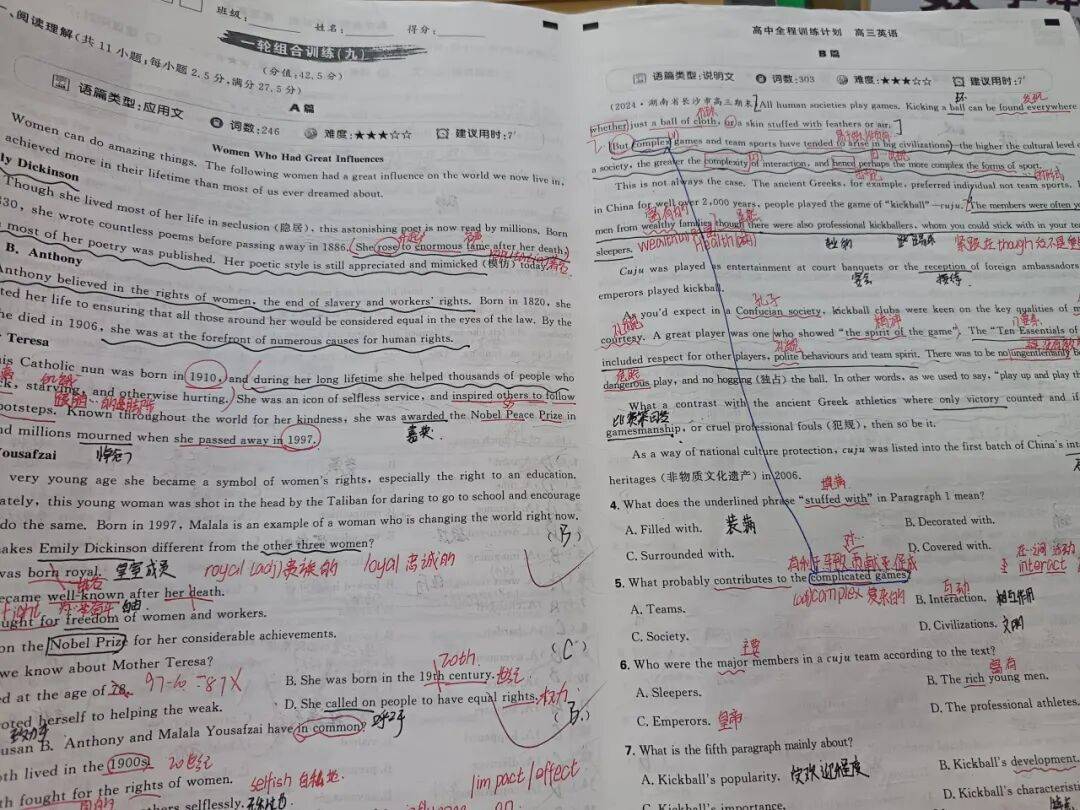 班级:
姓名:
得分:
一轮组合训练(九)
(分值:42.5分)
、阅读理解(共11小题;每小题2.5分,满分27.5分)
A篇
语篇类型:应用文
词数:246
难度:★★★☆☆
建议用时:7'
Women Who Had Great Influences
Women can do amazing things. The following women had a great influence on the world we now live in,
achieved more in their lifetime than most of us ever dreamed about.
ly Dickinson
Though she lived most of her life in seclusion (隐居), this astonishing poet is now read by millions. Born
830, she wrote countless poems before passing away in 1886. She rose to enormous fame after her death,
most of her poetry was published. Her poetic style is still appreciated and mimicked (模仿) today.
B. Anthony
Anthony believed in the rights of women, the end of slavery and workers' rights. Born in 1820, she
ted her life to ensuring that all those around her would be considered equal in the eyes of the law. By the
he died in 1906, she was at the forefront of numerous causes for human rights.
r Teresa
his Catholic nun was born in 1910, and during her long lifetime she helped thousands of people who
ck, starving and otherwise hurting. She was an icon of selfless service, and inspired others to follow
ootsteps. Known throughout the world for her kindness, she was awarded the Nobel Peace Prize in
nd millions mourned when she passed away in 1997.
嘉奖
Yousafzai
very young age she became a symbol of women's rights, especially the right to an education.
ately, this young woman was shot in the head by the Taliban for daring to go to school and encourage
do the same. Born in 1997, Malala is an example of a woman who is changing the world right now.
akes Emily Dickinson different from the other three women?
(B)
was born royal. 皇室成员 royal (adj)贵族的 loyal 忠诚的
came well-known after her death.
ught for freedom of women and workers.
自由
on the Nobel Prize for her considerable achievements.
we know about Mother Teresa?
(C)
ed at the age of 78.
87 X
B. She was born in the 19th century. 世纪
20th
oted herself to helping the weak.
D. She called on people to have equal rights. 权力
(B.)
usan B. Anthony and Malala Yousafzai have in common?
oth lived in the 1900s. 20世纪
th fought for the rights of women.
selfish
impact/effect
ers selflessly.
高中全程训练计划 高三英语
B篇
语篇类型:说明文
词数:303
难度:★★★☆☆
建议用时:7'
(2024·湖南省长沙市高三期末) All human societies play games. Kicking a ball can be found everywhere
发现
whether just a ball of cloth, or a skin stuffed with feathers or air.
But complex games and team sports have tended to arise in big civilizations—the higher the cultural level o
a society, the greater the complexity of interaction, and hence perhaps the more complex the forms of sport.
This is not always the case. The ancient Greeks, for example, preferred individual not team sports.
in China for well over 2,000 years, people played the game of "kickball"—ruju. The members were often yo
富有的
men from wealthy families though there were also professional kickballers, whom you could stick with in your te
sleepers.
Cuju was played as entertainment at court banquets or the reception of foreign ambassadors
宴会
接待
emperors played kickball.
孔子
As you'd expect in a Confucian society, kickball clubs were keen on the key qualities of m
courtesy. A great player was one who showed "the spirit of the game". The "Ten Essentials of
included respect for other players, polite behaviours and team spirit. There was to be no ungentlemanly be
危险
dangerous play, and no hogging (独占) the ball. In other words, as we used to say, "play up and play th
What a contrast with the ancient Greek athletics where only victory counted and if
gamesmanship, or cruel professional fouls (犯规), then so be it.
As a way of national cultural protection, cuju was listed into the first batch of China's int
heritages (非物质文化遗产) in 2006.
填满
4. What does the underlined phrase "stuffed with" in Paragraph 1 mean?
A. Filled with. 装满
B. Decorated with.
C. Surrounded with.
D. Covered with.
interact
5. What probably contributes to the complicated games?
(adj)complex 复杂的
A. Teams.
B. Interaction.
互动
相互作用
C. Society.
D. Civilizations. 文明
主要
6. Who were the major members in a cuju team according to the text?
富有
A. Sleepers.
B. The rich young men.
C. Emperors. 皇帝
D. The professional athletes.
7. What is the fifth paragraph mainly about?
A. Kickball's popularity. 受欢迎程度
B. Kickball's development.
C. Kickball's importance.
D. Kickball's characterist